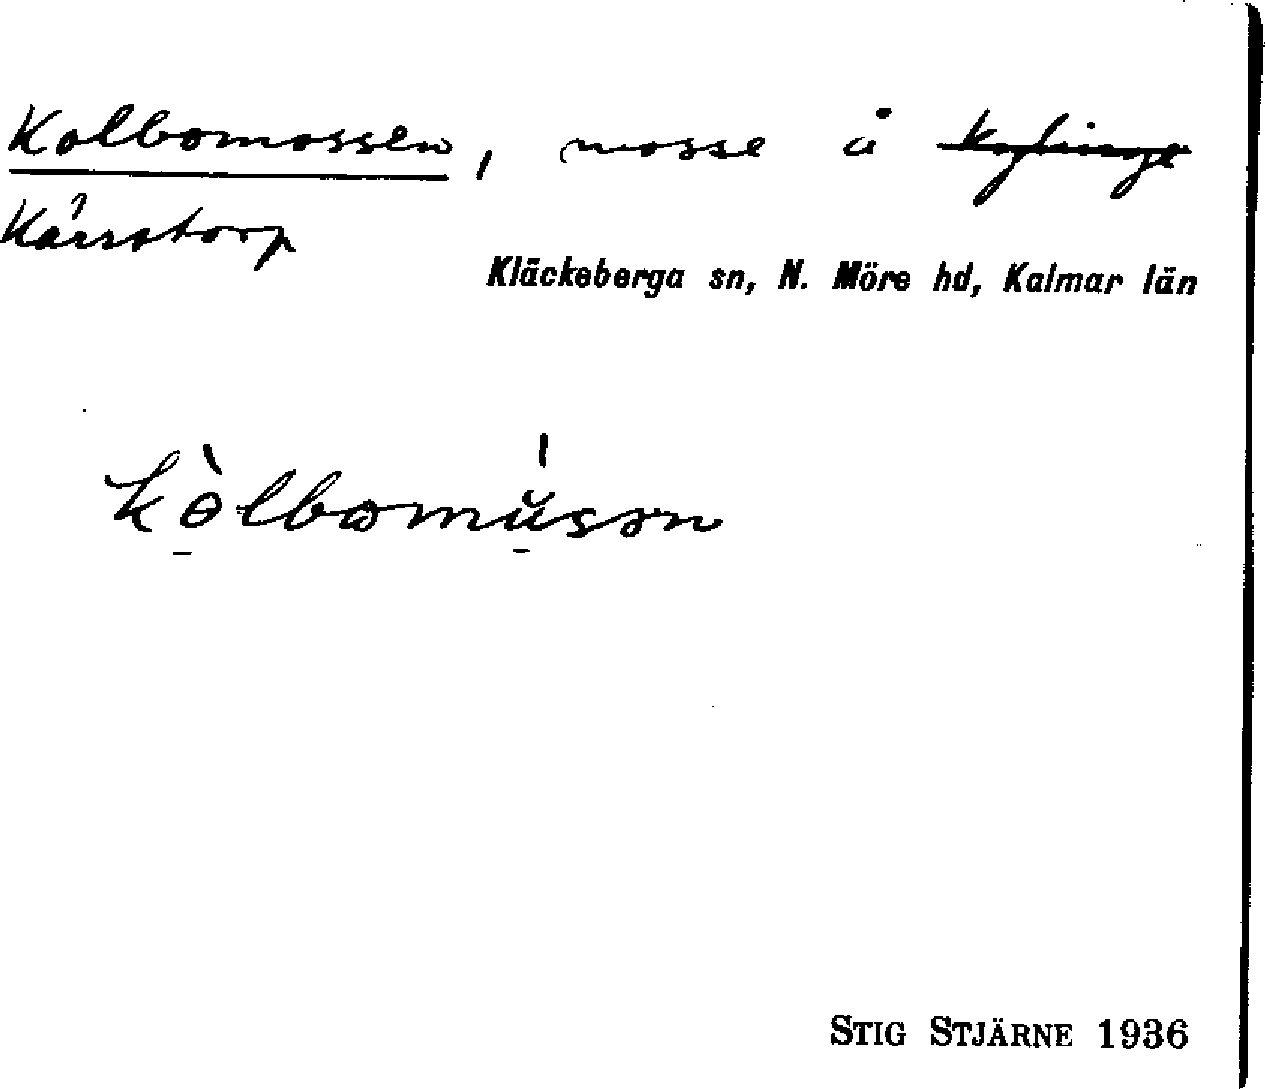 Kolbomossen, mosse å Kylinge
Kärrstorp
Kläckeberga sn, N. Möre hd, Kalmar län
STIG STJÄRNE 1936